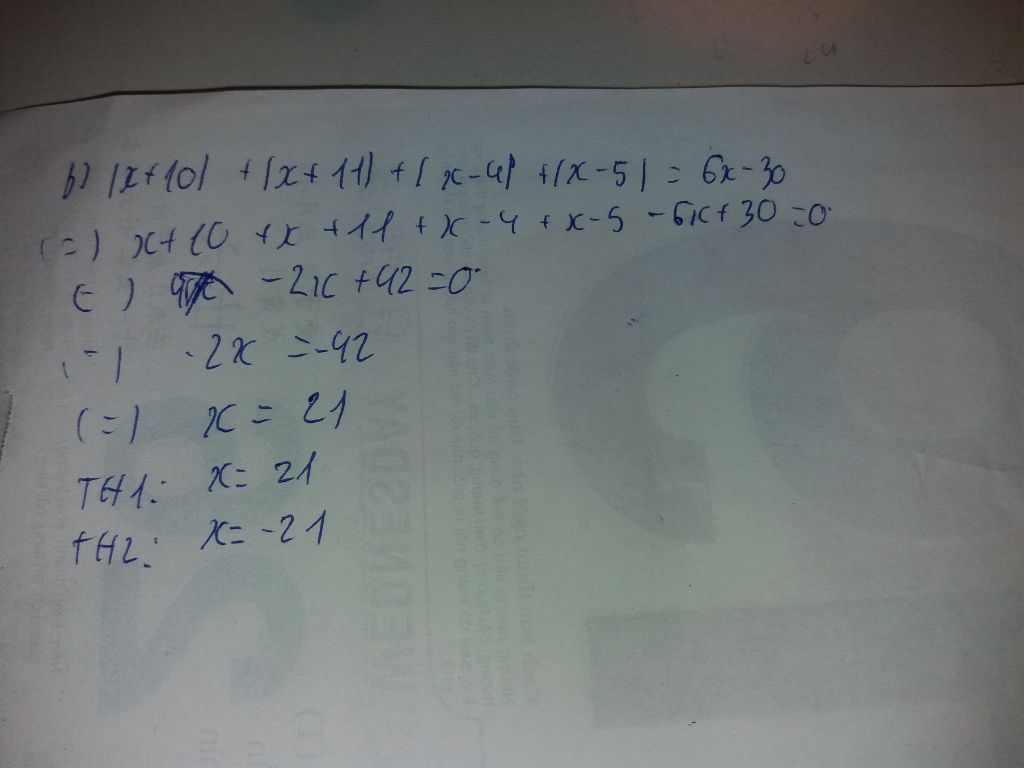 b) |x+10| + |x+11| + |x-4| + |x-5| = 6x-30
(=) x+10 +x +11 +x -4 +x-5 -6x+30 =0
(=) -2x +42 =0
(=) -2x =-42
(=) x = 21
TH1: x= 21
TH2: x= -21
WEDNESDAY